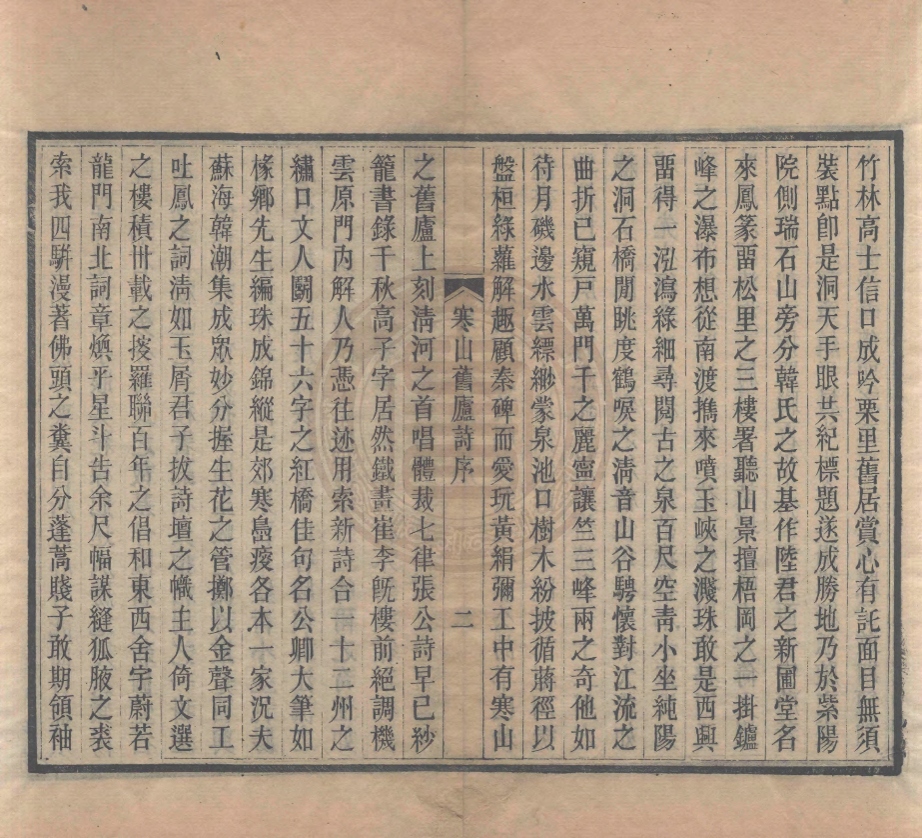 竹林高士信口成吟栗里舊居賞心有託面目無須
裝點卽是洞天手眼共紀標題遂成勝地乃於紫陽
院側瑞石山旁分韓氏之故基作陸君之新圃堂名
來鳳篆畱松里之三樓署聽山景擅梧岡之一掛鑪
峰之瀑布想從南渡攜來噴玉峽之濺珠敢是西興
畱得一泓瀉綠細尋閱古之泉百尺空靑小坐純陽
之洞石橋閒眺度鶴唳之淸音山谷騁懷對江流之
曲折已窺戸萬門千之麗寧讓竺三峰兩之奇他如
待月磯邊水雲縹緲蒙泉池口樹木紛披循蔣徑以
盤桓綠蘿解趣顧秦碑而愛玩黃絹彌工中有寒山
寒山舊廬詩序
二
之舊廬上刻淸河之首唱體裁七律張公詩早已紗
籠書錄千秋高子字居然鐵畫崔李旣樓前絕調機
雲原門內解人乃憑往迹用索新詩合一十二州之
繡口文人鬭五十六字之紅橋佳句名公卿大筆如
椽鄉先生編珠成錦縱是郊寒島瘦各本一家況夫
蘇海韓潮集成眾妙分握生花之管擲以金聲同工
吐鳳之詞淸如玉屑君子拔詩壇之幟主人倚文選
之樓積卅載之搜羅聯百年之倡和東西舍宇蔚若
龍門南北詞章煥乎星斗告余尺幅謀縫狐腋之裘
索我四駢漫著佛頭之糞自分蓬蒿賤子敢期領袖